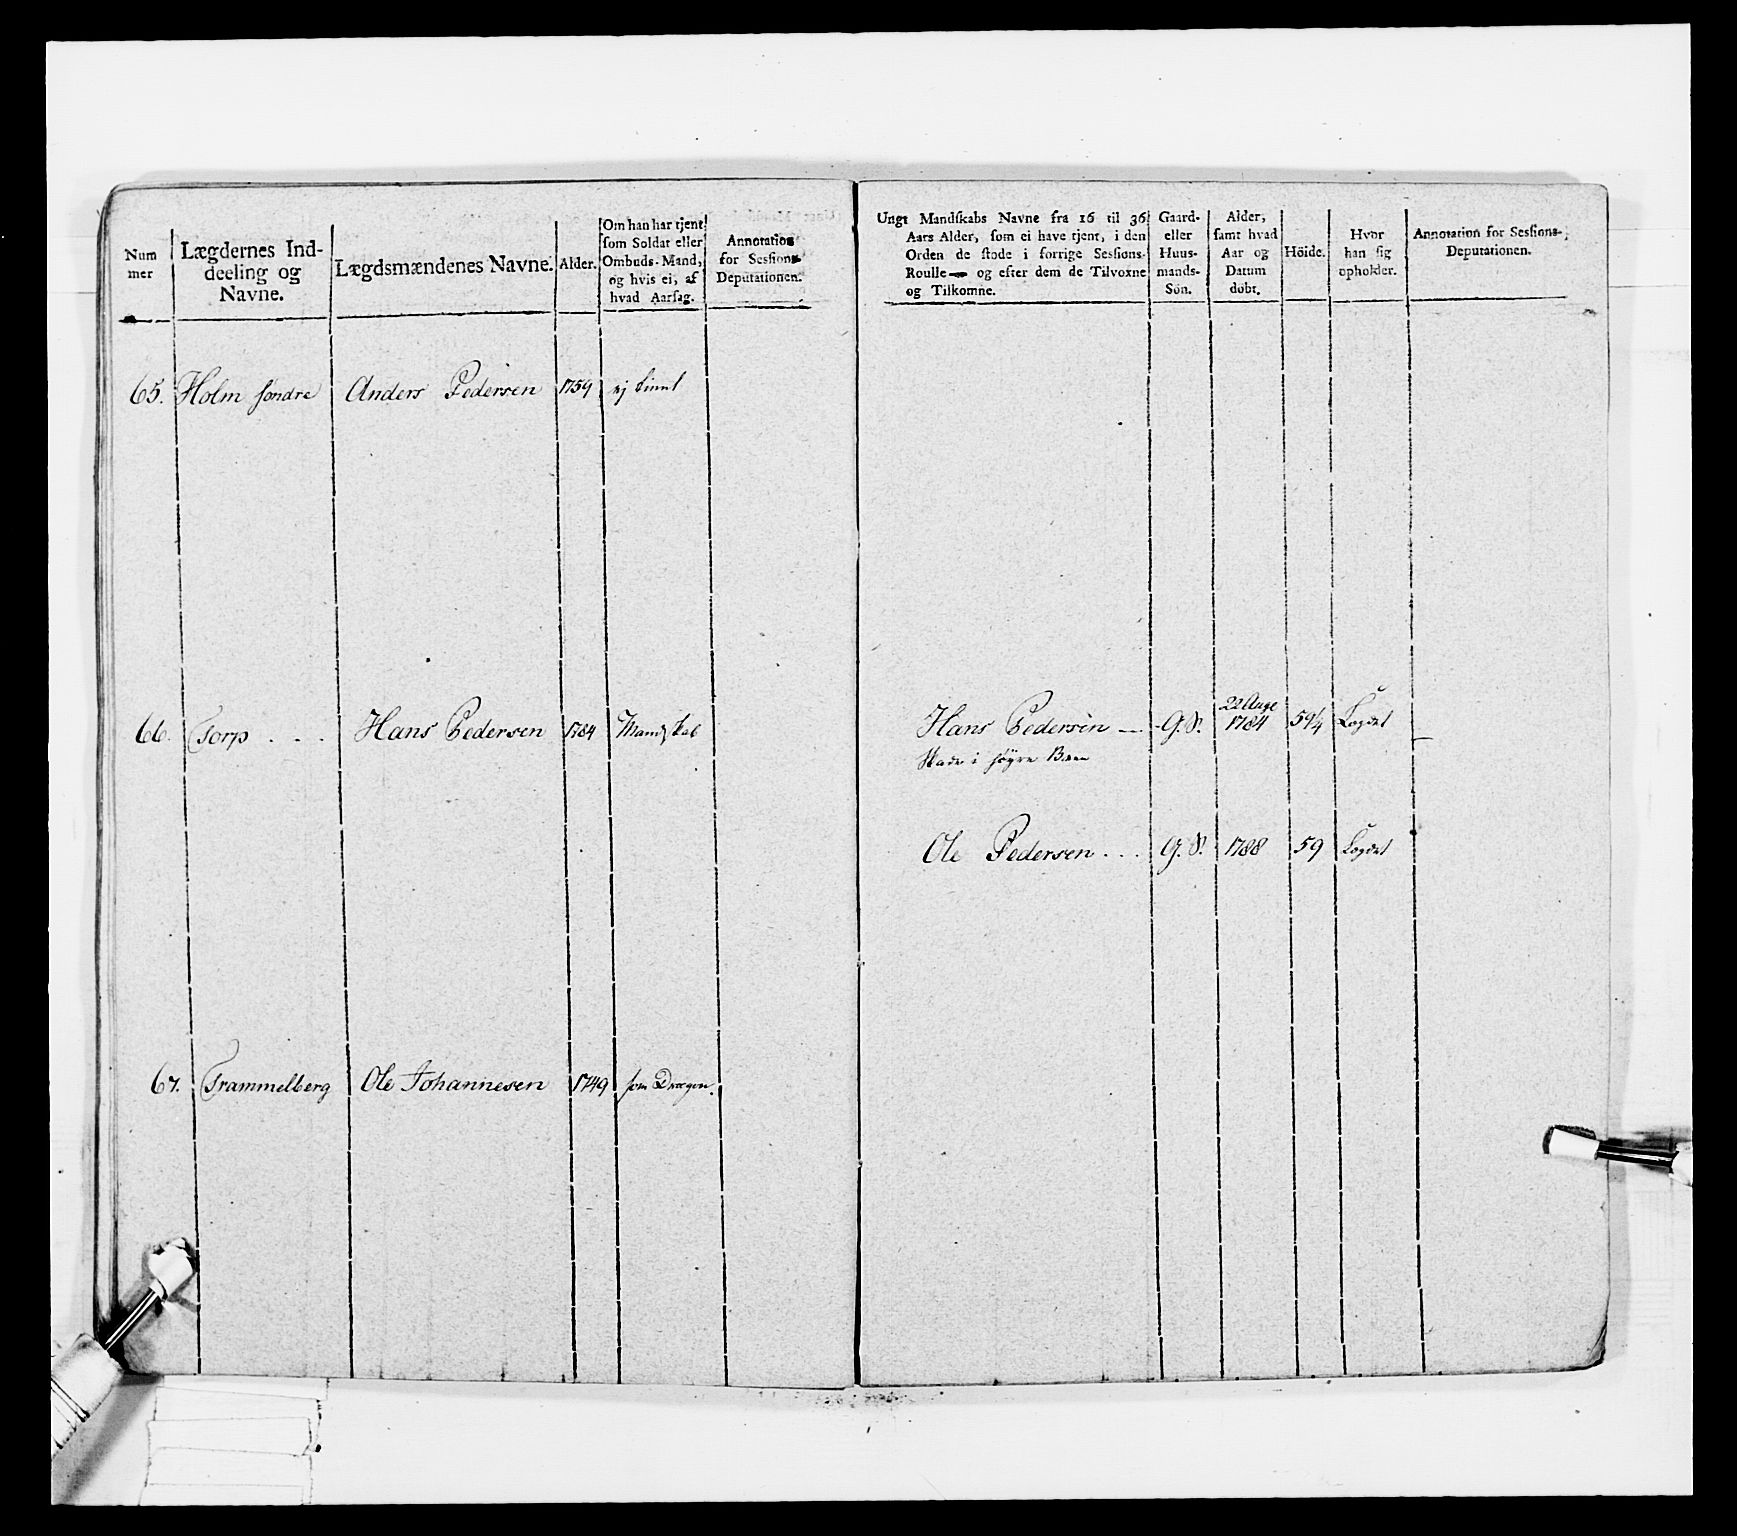 Num
mer
Lægdernes Ind-
deeling og
Navne.
Lægdsmændenes Navne.
Alder.
Om han har tjent
som Soldat eller
Ombuds-Mand,
og hvis ei, af
hvad Aarsag.
Annotation
for Sessions-
Deputationen.
65. Holm søndre Anders Pedersen 1759 ej tient
66. Torp . . . Hans Pedersen 1784 Mandskab
67. Trammelberg Ole Johannesen 1749 som Dragon.
Ungt Mandskabs Navne fra 16 til 36
Aars Alder, som ei have tjent, i den
Orden de stode i forrige Sessions-
Roulle og efter dem de Tilvoxne
og Tilkomne.
Gaard-
eller
Huus-
mands-
Søn.
Alder,
samt hvad
Aar og
Datum
døbt.
Höide.
Hvor
han sig
opholder.
Annotation for Sessions-
Deputationen.
22 Aug
Hans Pedersen — G. S. 1784 59¼ Lægdet —
Skade i høyre Been
Ole Pedersen . . . G. S. 1788 59 Lægdet